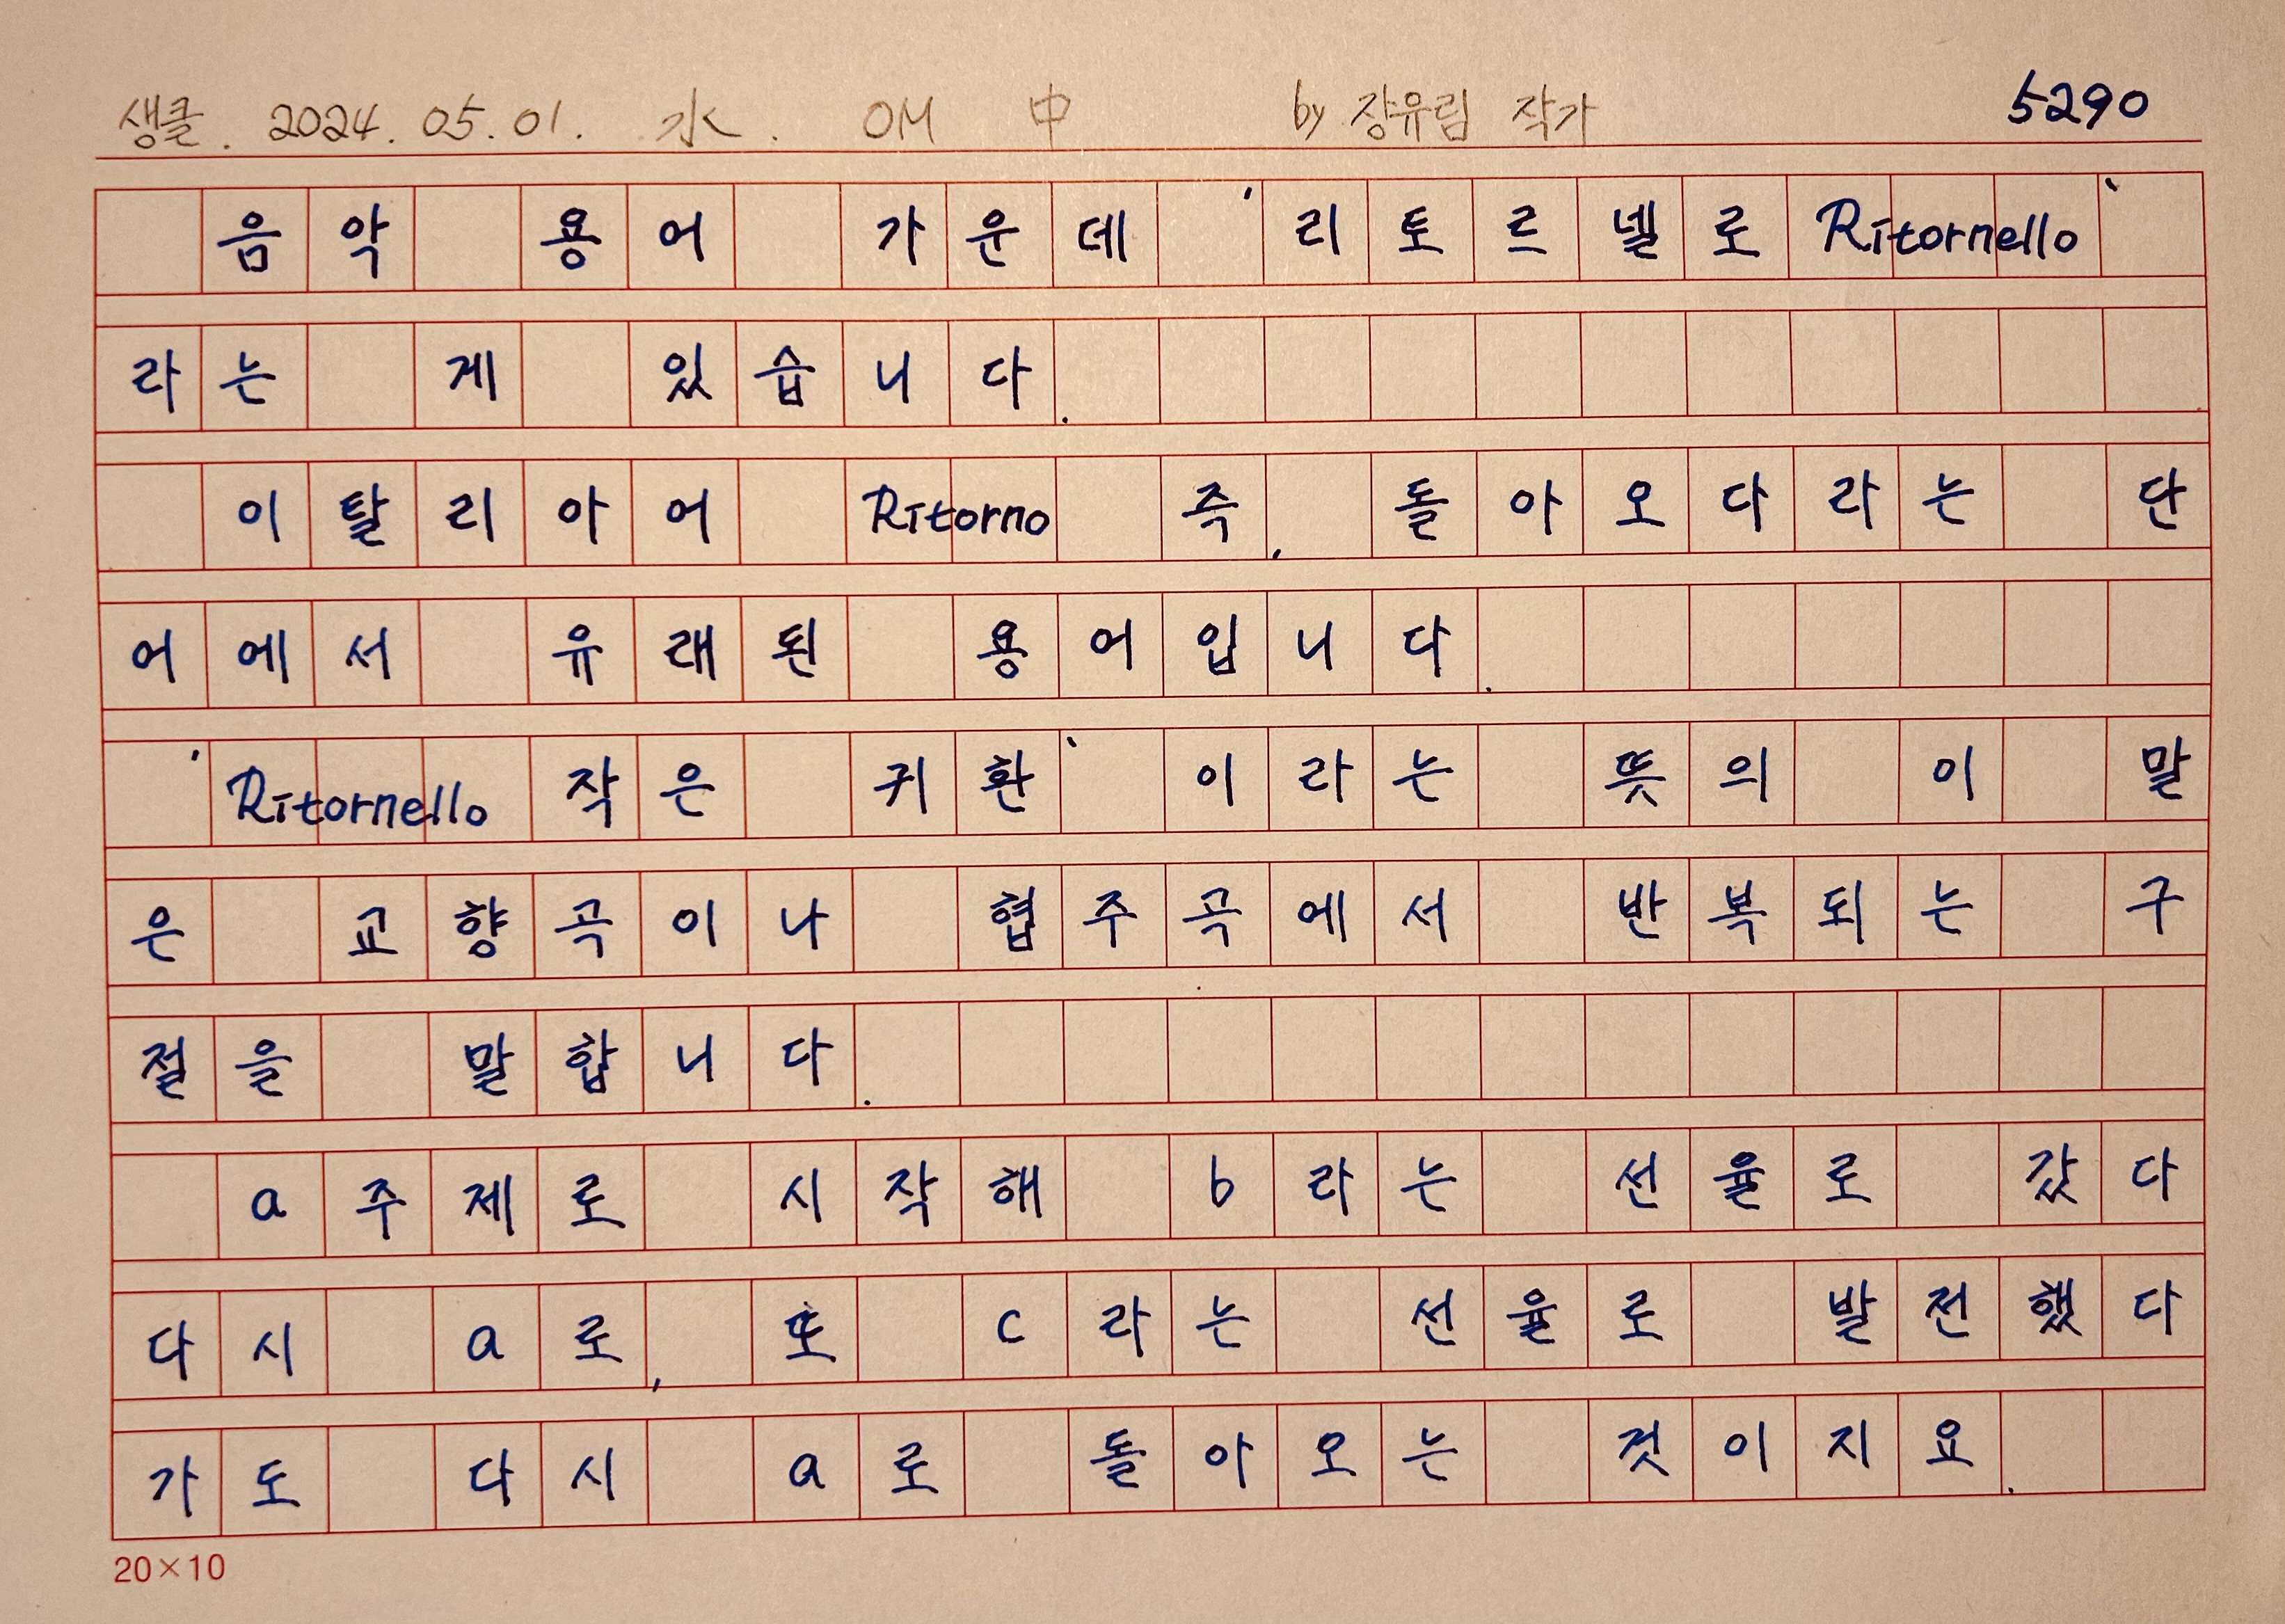 생클. 2024. 05. 01. 水. OM 中 by 장유림 작가 5290
음악 용어 가운데 '리토르넬로 Ritornello'
라는 게 있습니다.
이탈리아어 Ritorno 즉, 돌아오다라는 단
어에서 유래된 용어입니다.
'Ritornello 작은 귀환' 이라는 뜻의 이 말
은 교향곡이나 협주곡에서 반복되는 구
절을 말합니다.
a주제로 시작해 b라는 선율로 갔다
다시 a로, 또 c라는 선율로 발전했다
가도 다시 a로 돌아오는 것이지요.
20×10